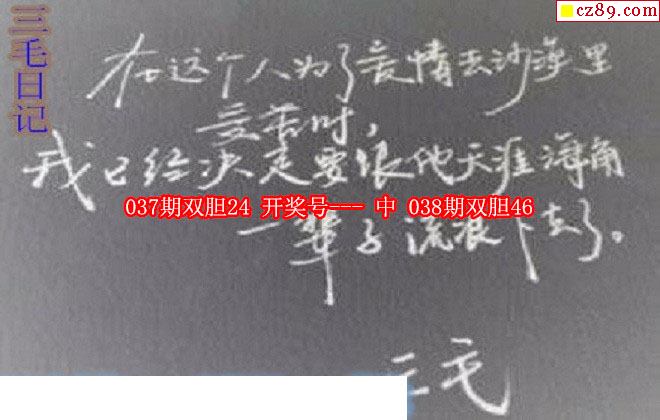 cz89.com
三毛日记
在这个人为了爱情去沙漠里
受苦时,
我已经决定要跟他天涯海角
037期双胆24 开奖号--- 中 038期双胆46
一辈子流浪下去了。
三毛